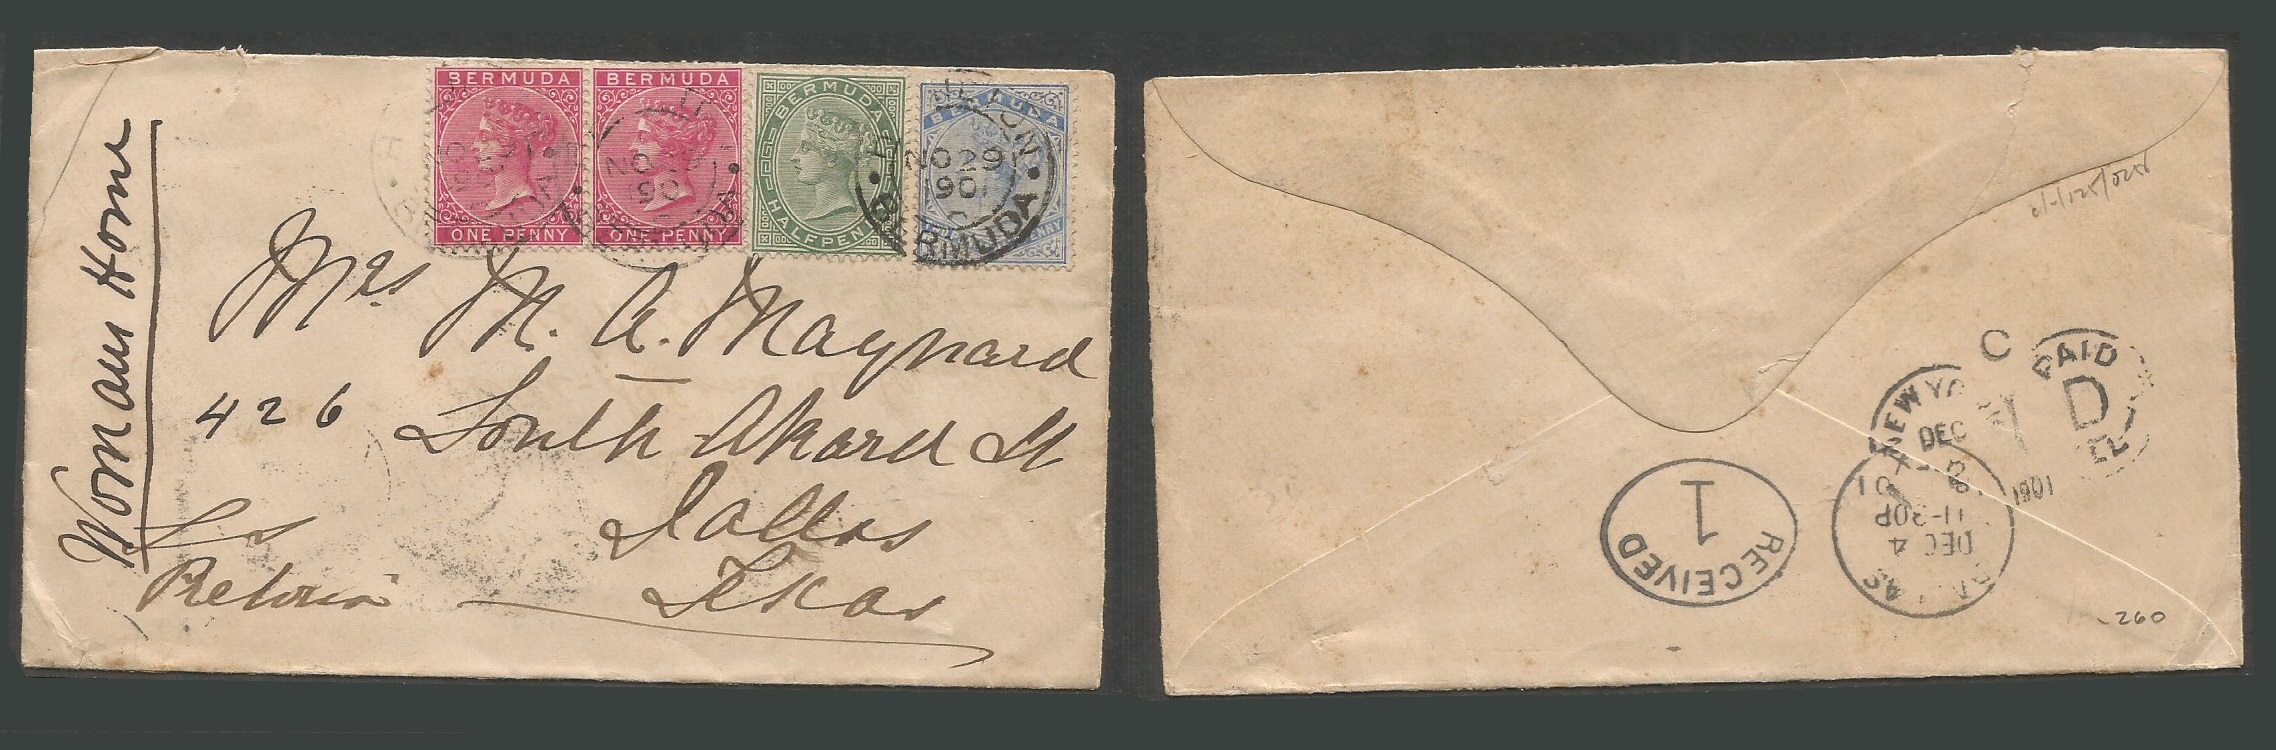 BERMUDA
ONE PENNY
BERMUDA
ONE PENNY
BERMUDA
HALFPENNY
BERMUDA
HAMILTON
NO 29
1901
BERMUDA
Womans Home
Mrs M. A. Maynard
426 South Akard St
Dallas
Texas
Ss
Pretoria
C
NEW YORK
DEC
PAID
D
1901
RECEIVED
1
DEC 4
11-30P
01
260